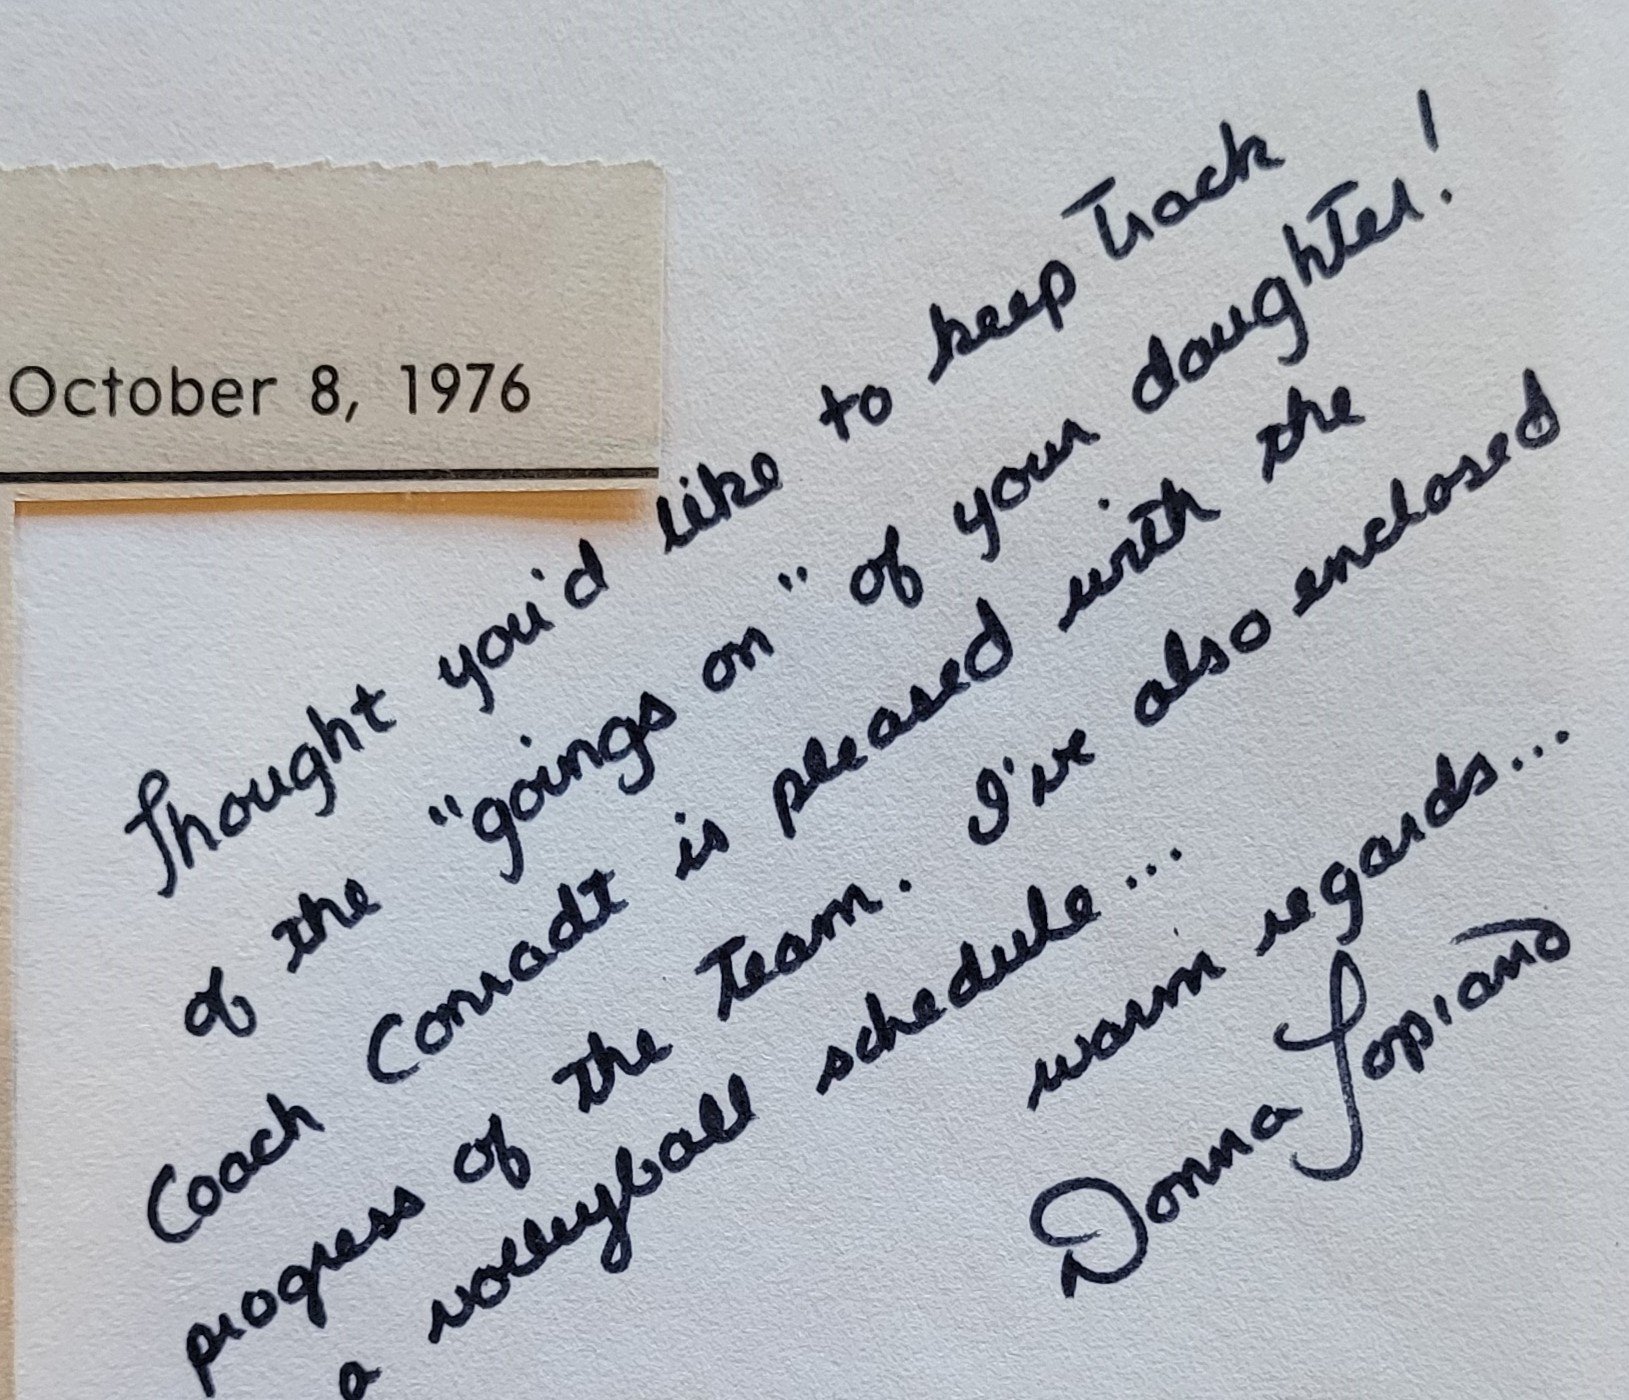 October 8, 1976
Thought you'd like to keep track
of the "goings on" of your daughter!
Coach Conradt is pleased with the
progress of the team. I've also enclosed
a volleyball schedule...
warm regards...
Donna Lopiano